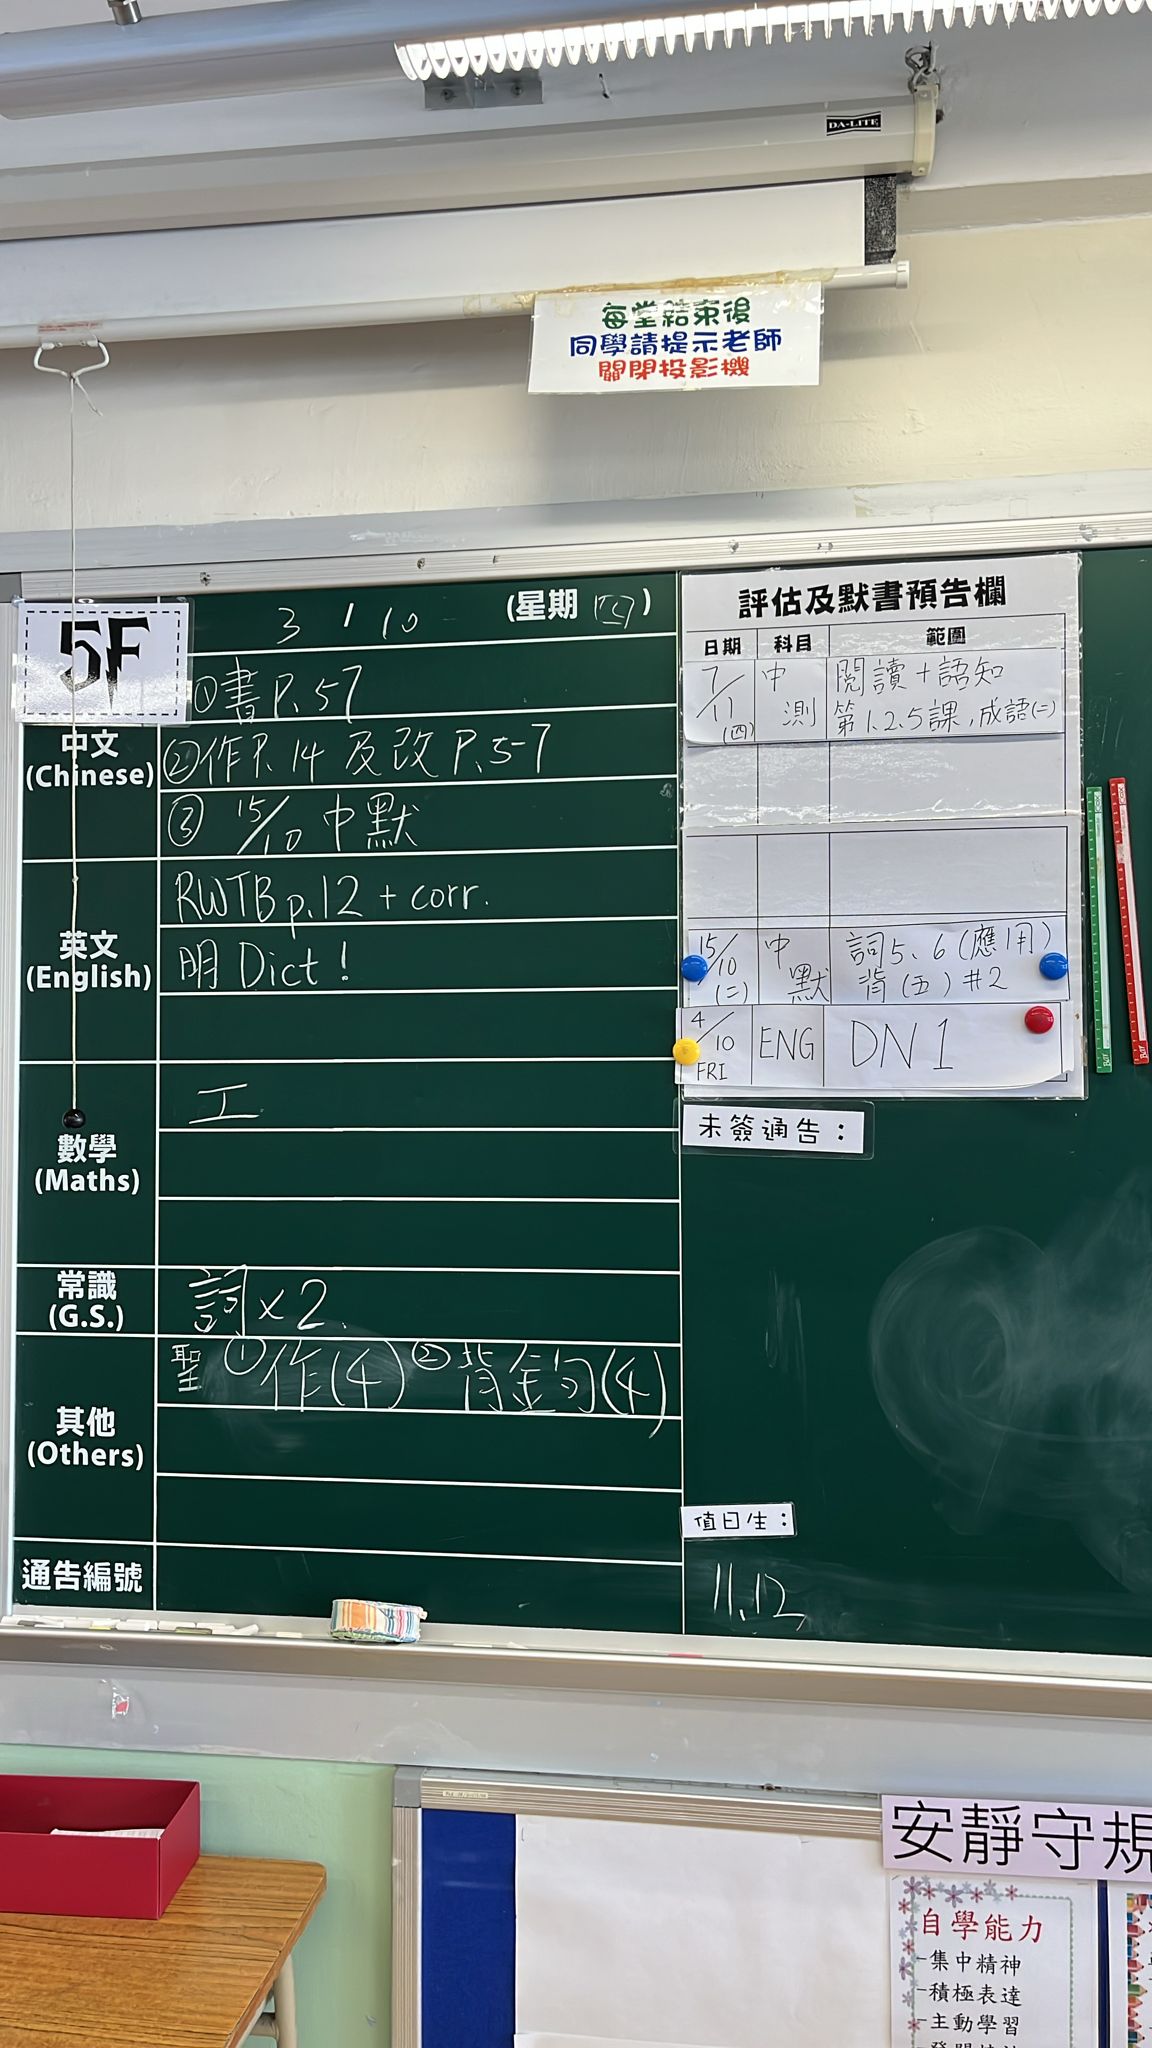 DA-LITE
每堂結束後
同學請提示老師
關閉投影機
5F
3 / 10 (星期四)
中文
(Chinese)
①書P.57
②作P.14 及改P.5-7
③ 15/10 中默
英文
(English)
RWTB p.12 + corr.
明 Dict!
數學
(Maths)
工
常識
(G.S.)
詞x2.
其他
(Others)
聖 ①作(4) ②背金句(4)
通告編號
評估及默書預告欄
日期 科目 範圍
7/11 (四) 中測 閱讀+語知
第1.2.5課,成語(二)
15/10 (二) 中默 詞5、6(應用)
背(五)#2
4/10 FRI ENG DN 1
未簽通告：
值日生：
11.12
安靜守規
自學能力
-集中精神
-積極表達
-主動學習